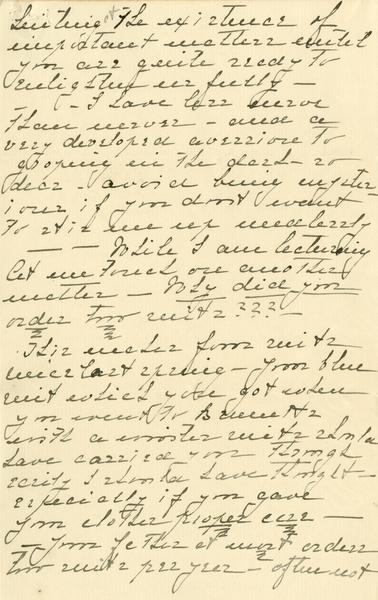 hinting at the existence of
important matters until
you are quite ready to
enlighten me fully –
– I have less nerve
than never – and a
very developed aversion to
groping in the dark – so
dear – avoid being myster-
ious if you don't want
to stir me up needlessly
– – While I am lecturing
let me touch on another
matter – Why did you
order two suits ???
This makes four suits
since last spring – your blue
suit which you got when
you went to Bennetts
with a winter suit should
have carried your through
easily I should have thought –
especially if you gave
your clothes proper care –
– Your father at most orders
two suits per year – often not